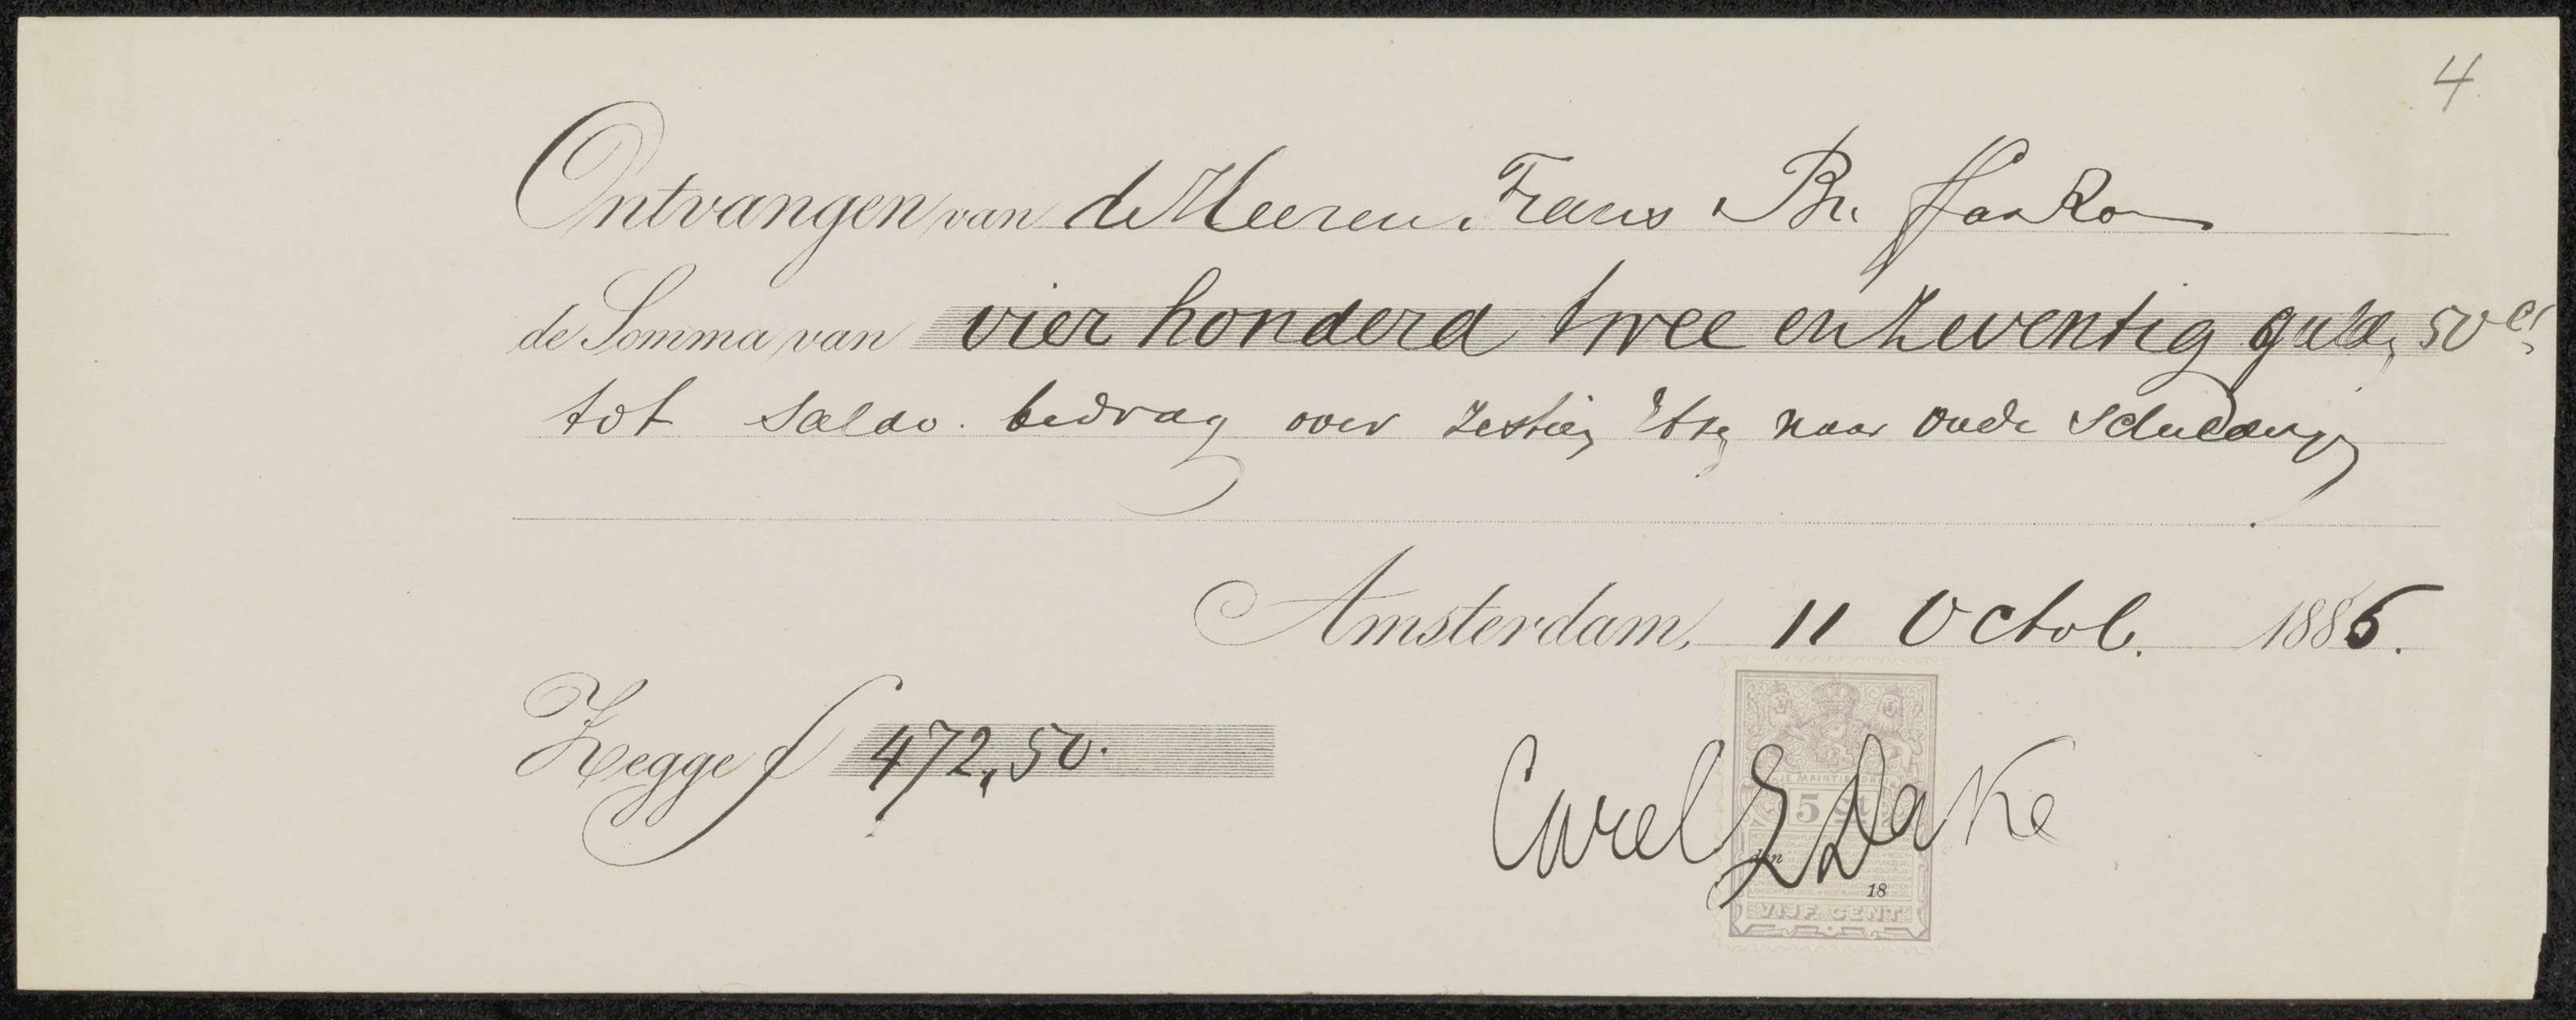 4
Ontvangen van de Heeren Frans Br. Hanko
de Somma van vier honderd twee en zeventig guld, 50 ct
tot saldo bedrag over zestien Etsen naar oude schilderijen
Amsterdam, 11 Octob. 1886.
Zegge f 472,50.
JE MAINTIENDRAI
5 Ct
Carel L Dake
den
18
VIJF CENT